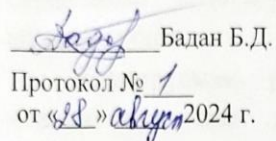 Бадан Б.Д.
Протокол № 1
от «28» август 2024 г.